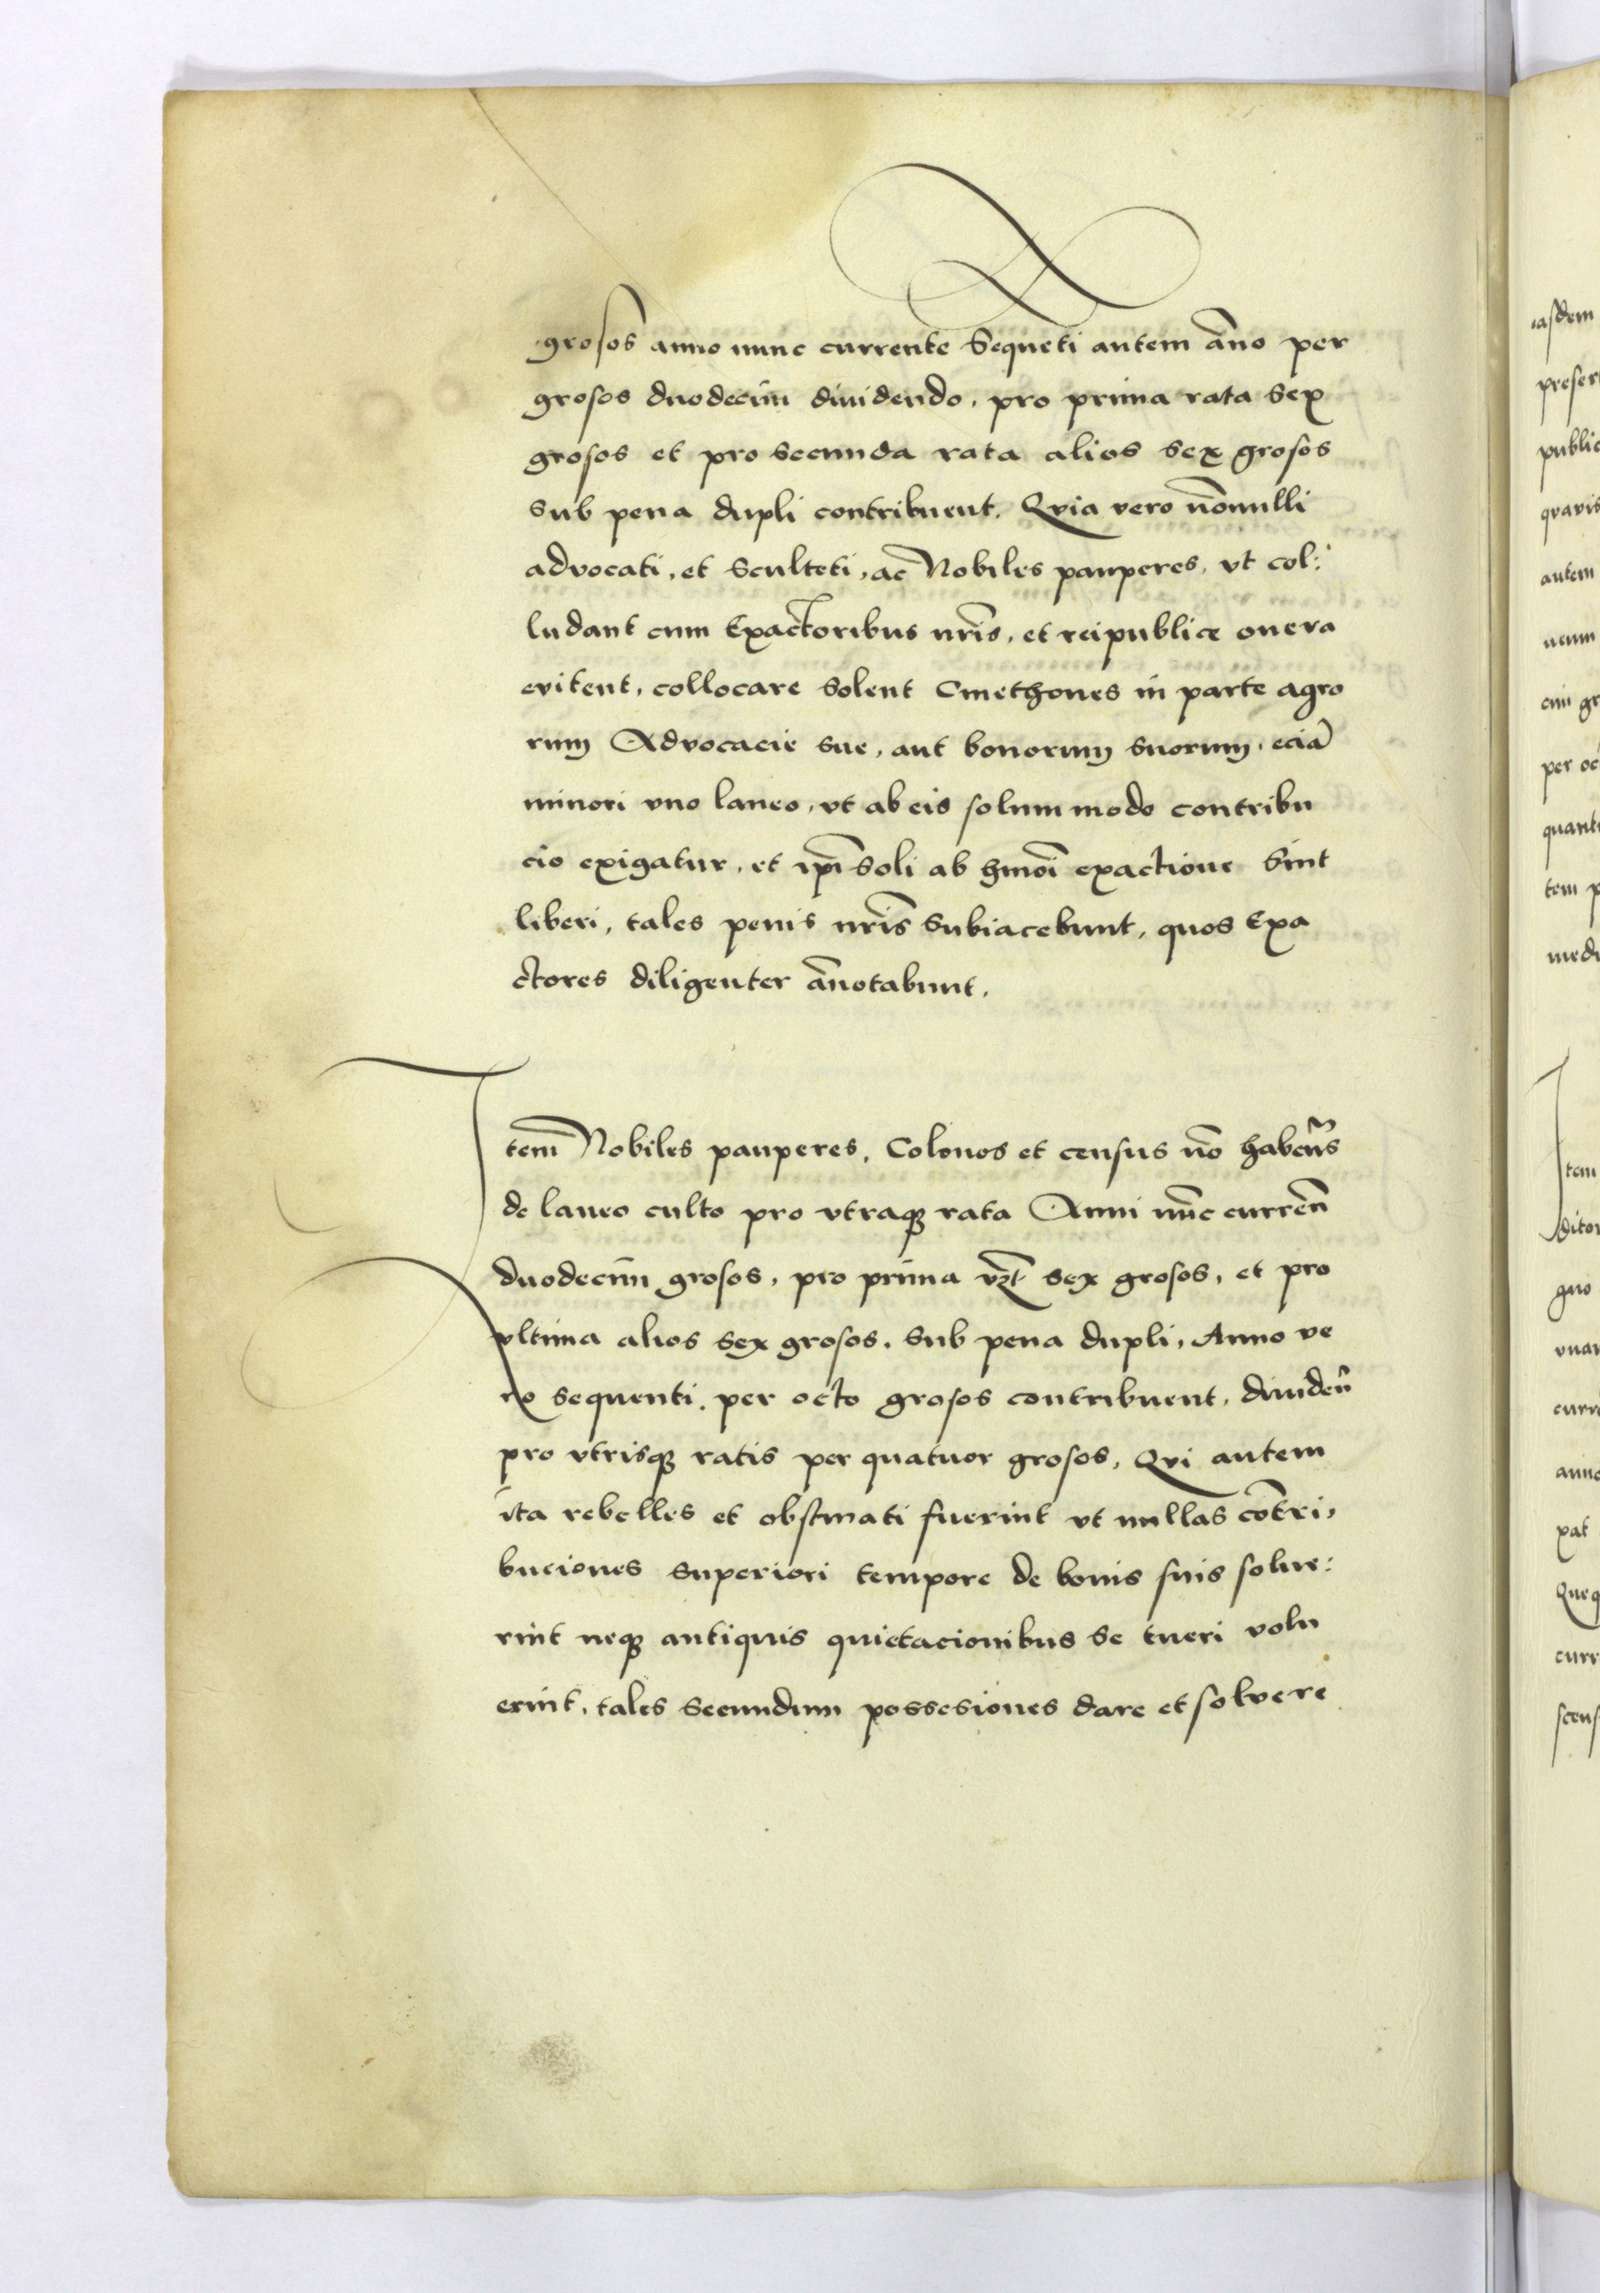 grosos anno nunc currente Sequeti autem āno per
grosos duodecim diuidendo, pro prima rata sex
grosos et pro secunda rata alios sex grosos
sub pena dupli contribuent. Qvia vero nōnulli
advocati, et Sculteti, ac Nobiles pauperes, vt col:
ludant cum Exactoribus nr̄is, et reipublice onera
evitent, collocare solent Cmethones in parte agro
rum Advocacie sue, aut bonorum suorum, eciā
minori vno laneo, vt ab eis solummodo contribu
cio exigatur, et ip̄i soli ab hmōi exactione sint
liberi, tales penis nr̄is subiacebunt, quos Exa
ctores diligenter ānotabunt.
Item Nobiles pauperes, Colonos et census nō haben̄s
de laneo culto pro vtraq; rata Anni nūc curren̄
duodecim grosos, pro prima vz̄t sex grosos, et pro
vltima alios sex grosos, sub pena dupli, Anno ve
ro sequenti, per octo grosos contribuent, diuiden̄
pro vtrisq; ratis per quatuor grosos, Qvi autem
ita rebelles et obstinati fuerint vt nullas cōtri,
buciones superiori tempore de bonis suis solue:
rint neq; antiquis quietacionibus se tueri volu
erint, tales secundum possesiones dare et solvere
asdem
preser
public
qvavis
autem
cui gr
per oc
quant
tem p
medi
Item
ditor
curr
anno
pat
curr